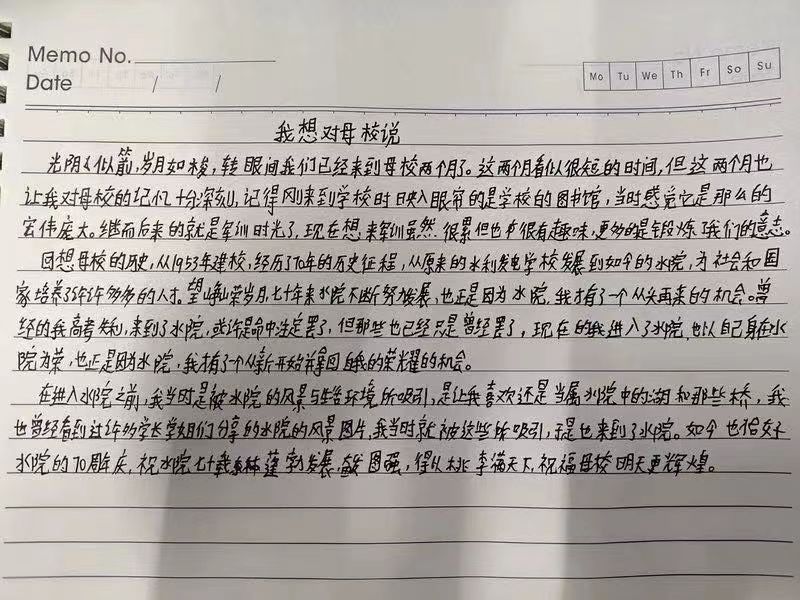 Memo No.
Date / /
Mo Tu We Th Fr Sa Su
我想对母校说
光阴似箭,岁月如梭,转眼间我们已经来到母校两个月了。这两个月看似很短的时间,但这两个月也
让我对母校的记忆十分深刻,记得刚来到学校时映入眼帘的是学校的图书馆,当时感觉它是那么的
宏伟庞大。继而后来的就是军训时光了,现在想来军训虽然很累但也很有趣味,更多的是锻炼了我们的意志。
回想母校的历史,从1953年建校,经历了70年的历史征程,从原来的水利发电学校发展到如今的水院,为社会和国
家培养了许许多多的人才。望峥嵘岁月,七十年来水院不断努力发展,也正是因为水院,我才有了一个从头再来的机会。曾
经的我高考失利,来到了水院,或许是命中注定罢了,但那些也已经只是曾经罢了,现在的我进入了水院,也以自己身在水
院为荣,也正是因为水院,我有了个从新开始赢回自我的荣耀的机会。
在进入水院之前,我当时是被水院的风景与生活环境所吸引,最让我喜欢还是当属水院中的湖和那些桥,我
也曾经看到过许多学长学姐们分享的水院的风景图片,我当时就被这些所吸引,于是也来到了水院。如今也恰好
水院的70周年庆,祝水院七十载蓬勃发展,图强,得以桃李满天下,祝福母校明天更辉煌。